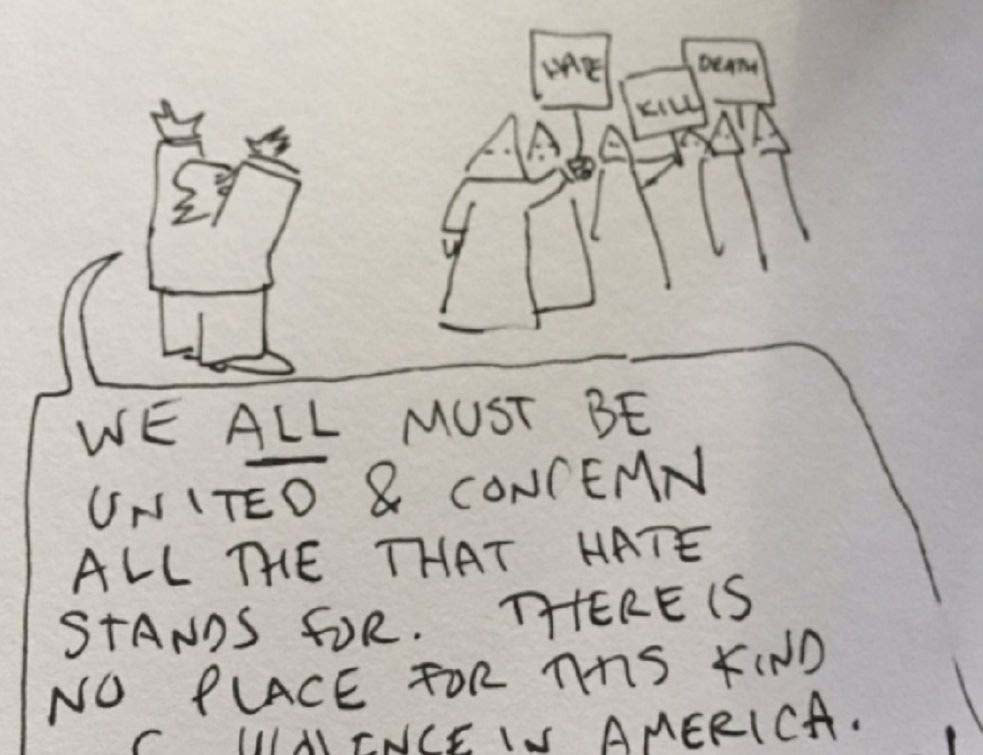 HATE
KILL
DEATH
WE ALL MUST BE
UNITED & CONDEMN
ALL THE THAT HATE
STANDS FOR. THERE IS
NO PLACE FOR THIS KIND
VIOLENCE IN AMERICA.